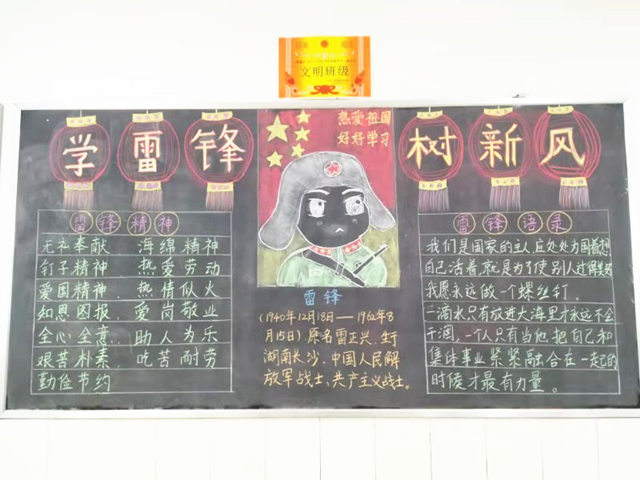 文明班级
学雷锋
树新风
热爱祖国
好好学习
雷锋精神
无私奉献、海绵精神
钉子精神、热爱劳动
爱国精神、热情似火
知恩图报、爱岗敬业
全心全意、助人为乐
艰苦朴素、吃苦耐劳
勤俭节约
雷锋
(1940年12月18日——1962年8
月15日)原名雷正兴,生于
湖南长沙,中国人民解
放军战士、共产主义战士。
雷锋语录
我们是国家的主人应处处为国着想
自己活着,就是为了使别人过得美好
我愿永远做一个螺丝钉.
一滴水只有放进大海里才永远不会
干涸,一个人只有当他把自己和
集体事业紧紧融合在一起的
时候才最有力量。